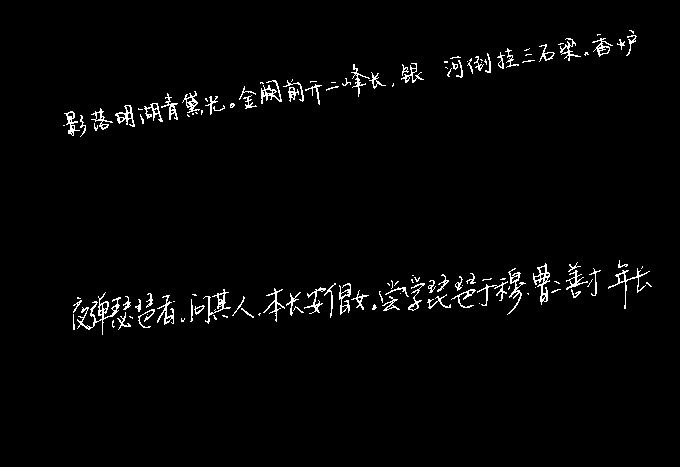 影落明湖青黛光。金阙前开二峰长,银 河倒挂三石梁。香炉
夜弹琵琶者。问其人,本长安倡女。尝学琵琶于穆、曹二善才 年长